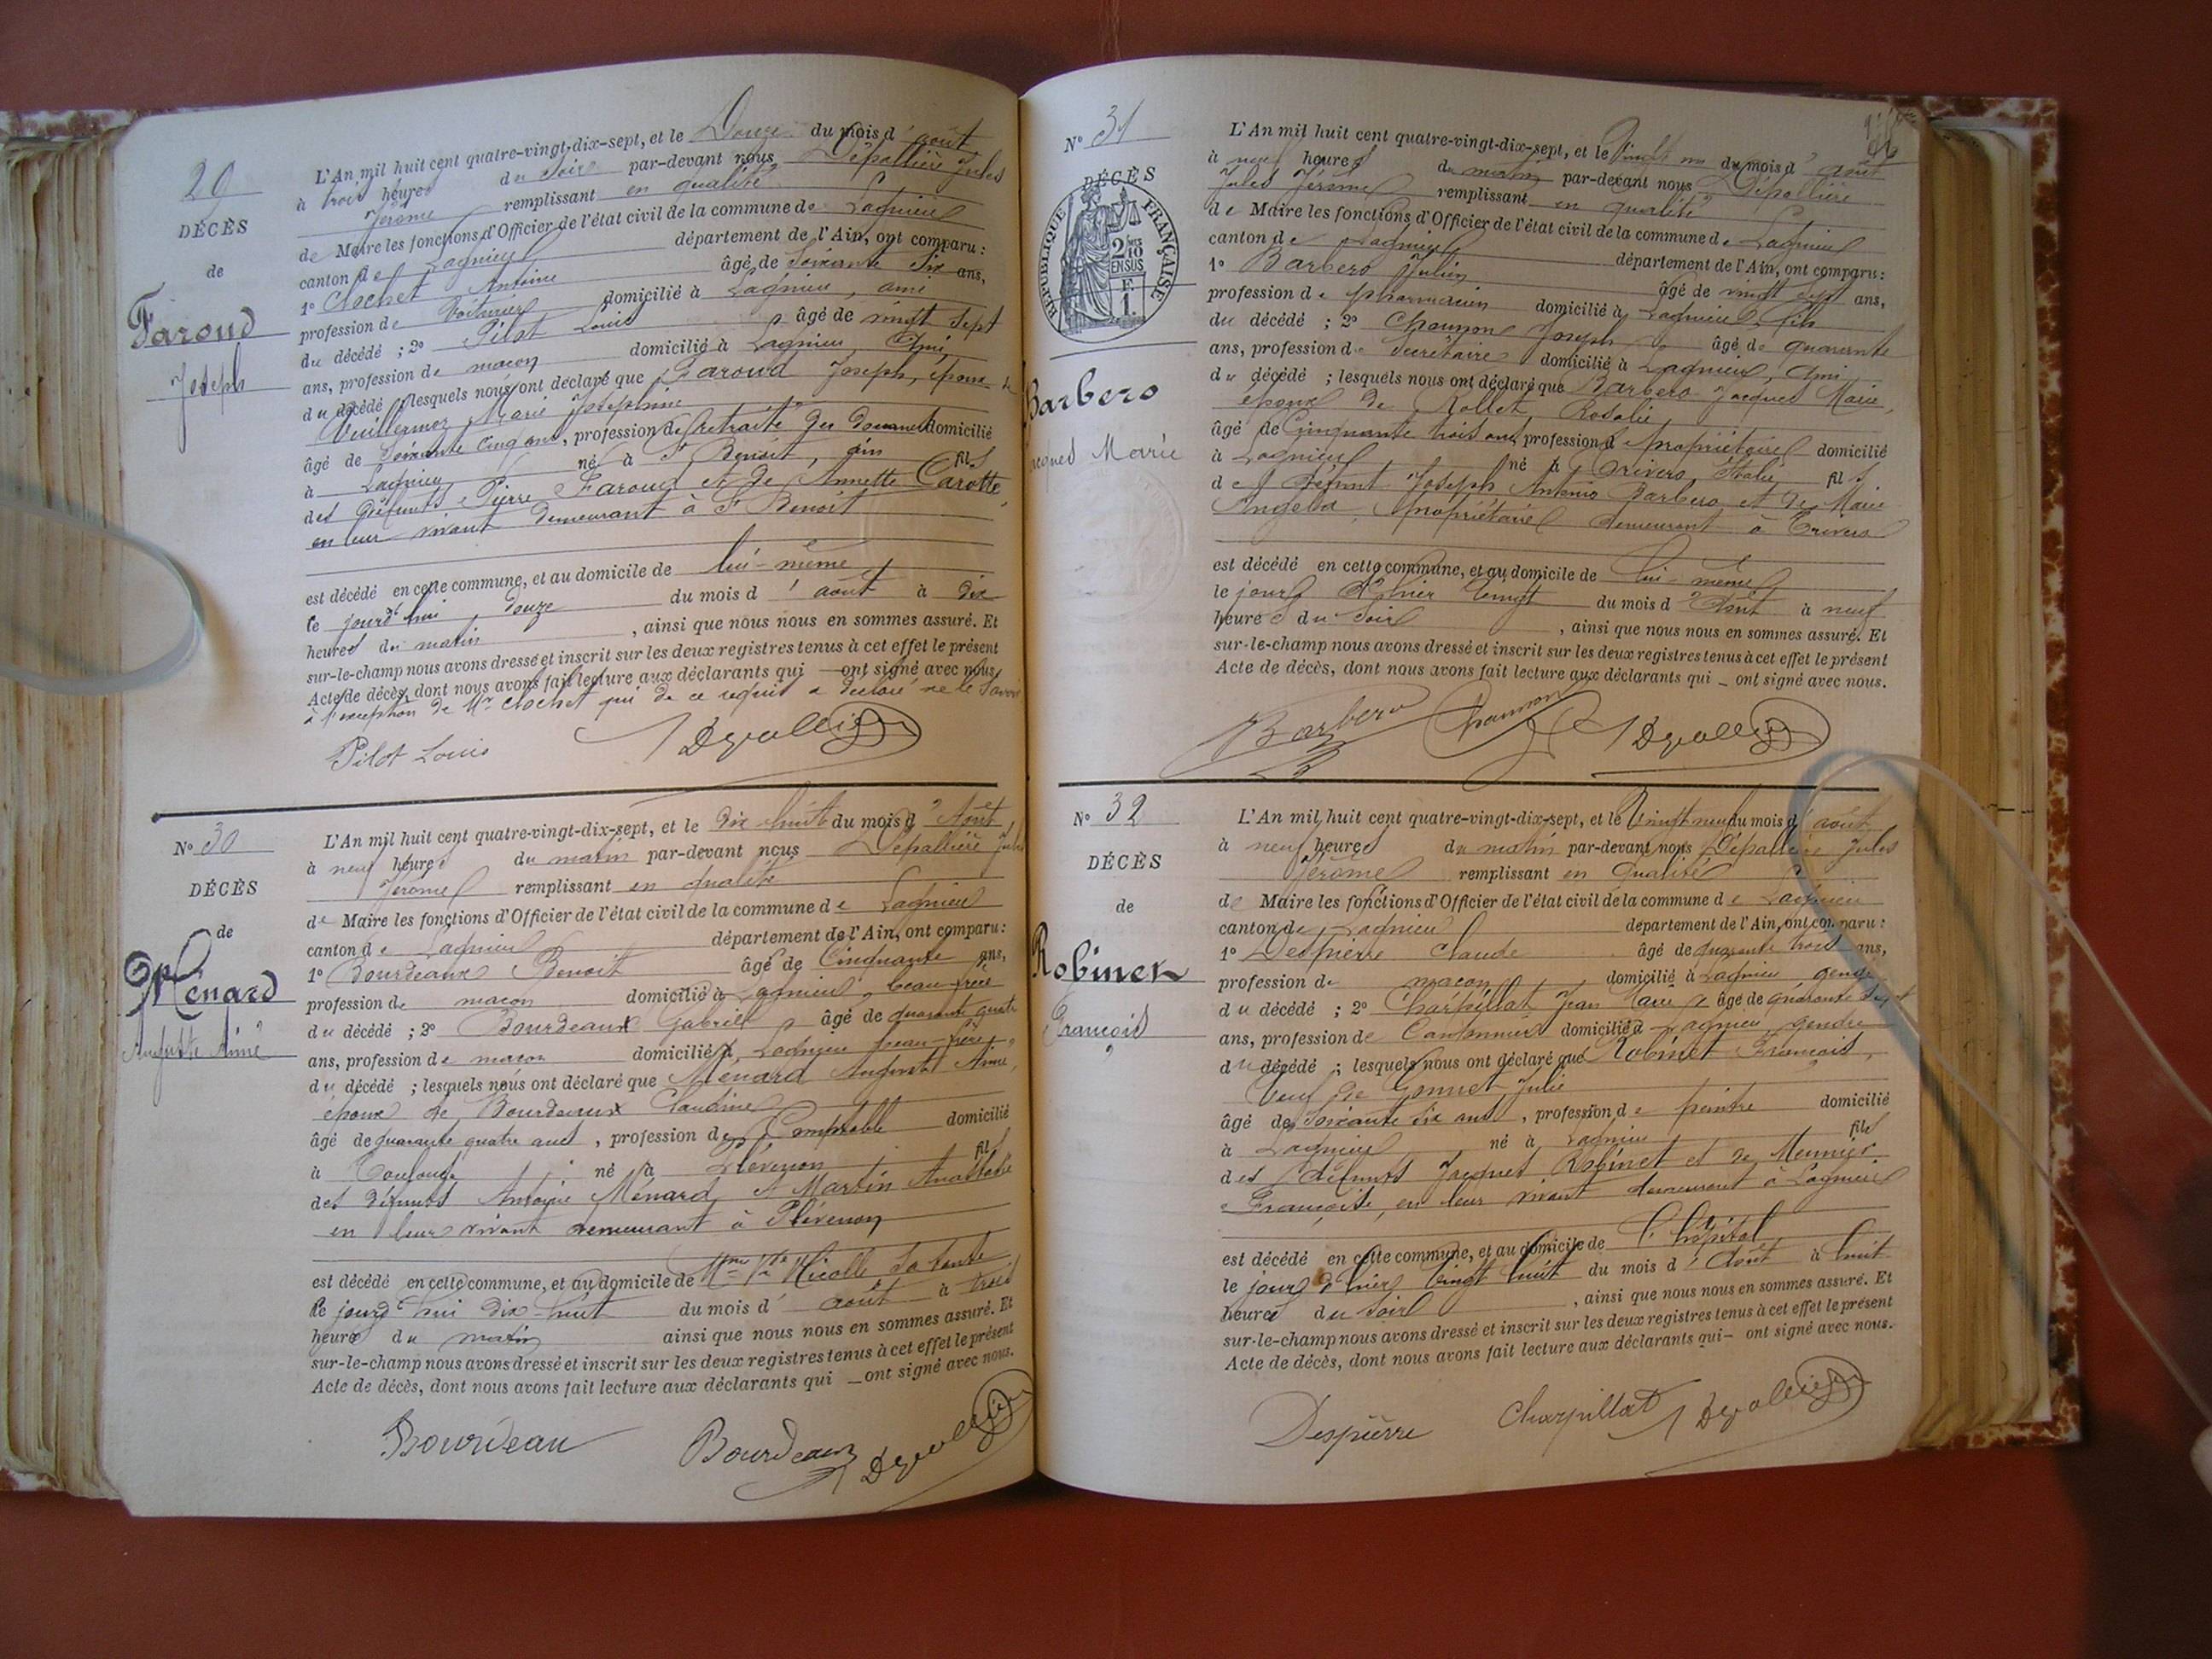 29
DÉCÈS
de
Faroud
Joseph
L'An mil huit cent quatre-vingt-dix-sept, et le Douze du mois d'août
à trois heures du soir par-devant nous Dépallière Jules
Jérôme remplissant en qualité
de Maire les fonctions d'Officier de l'état civil de la commune de Lagnieu
canton de Lagnieu département de l'Ain, ont comparu :
1° Clochet Antoine âgé de soixante six ans,
profession de Voiturier domicilié à Lagnieu, ami
du décédé ; 2° Pilot Louis âgé de vingt sept
ans, profession de maçon domicilié à Lagnieu, ami
du décédé lesquels nous ont déclaré que Faroud Joseph, époux de
Vuillermoz Marie Joséphine
âgé de soixante cinq ans, profession de retraité des douanes domicilié
à Lagnieu né à St Benoit, ain fils
des défunts Pierre Faroud et de Annette Carotte,
en leur vivant demeurant à St Benoit
est décédé en cette commune, et au domicile de lui-même
le jourd'hui douze du mois d'août à dix
heures du matin, ainsi que nous nous en sommes assuré. Et
sur-le-champ nous avons dressé et inscrit sur les deux registres tenus à cet effet le présent
Acte de décès, dont nous avons fait lecture aux déclarants qui ont signé avec nous,
à l'exception de Mr Clochet qui de ce requis a déclaré ne le savoir
Pilot Louis Depallière
N° 30
DÉCÈS
de
Ménard
Auguste Aimé
L'An mil huit cent quatre-vingt-dix-sept, et le dix huit du mois d'Août
à neuf heures du matin par-devant nous Dépallière Jules
Jérôme remplissant en qualité
de Maire les fonctions d'Officier de l'état civil de la commune de Lagnieu
canton de Lagnieu département de l'Ain, ont comparu :
1° Bourdeaux Benoit âgé de Cinquante ans,
profession de maçon domicilié à Lagnieu, beau-frère
du décédé ; 2° Bourdeaux Gabriel âgé de quarante quatre
ans, profession de maçon domicilié à Lagnieu beau-frère
du décédé ; lesquels nous ont déclaré que Ménard Auguste Aimé,
époux de Bourdeaux Claudine
âgé de quarante quatre ans, profession de Comptable domicilié
à Toulouse né à Plévenon fils
des défunts Antoine Ménard et Martin Anastasie
en leur vivant demeurant à Plévenon
est décédé en cette commune, et au domicile de Mme Vve Nicolle sa tante
le jourd'hui dix-huit du mois d'août à trois
heures du matin ainsi que nous nous en sommes assuré. Et
sur-le-champ nous avons dressé et inscrit sur les deux registres tenus à cet effet le présent
Acte de décès, dont nous avons fait lecture aux déclarants qui ont signé avec nous.
Bourdeau Bourdeaux Depallière
N° 31
DÉCÈS
RÉPUBLIQUE FRANÇAISE
2/10 EN SUS
F. 1.
Barbero
Jacques Marie
L'An mil huit cent quatre-vingt-dix-sept, et le vingt un du mois d'août
à neuf heures du matin par-devant nous Dépallière
Jules Jérôme remplissant en qualité
de Maire les fonctions d'Officier de l'état civil de la commune de Lagnieu
canton de Lagnieu département de l'Ain, ont comparu :
1° Barbero Julien âgé de vingt sept ans,
profession de pharmacien domicilié à Lagnieu, fils
du décédé ; 2° Chaumon Joseph âgé de quarante
ans, profession de Secrétaire domicilié à Lagnieu, ami
du décédé ; lesquels nous ont déclaré que Barbero Jacques Marie,
époux de Rollet Rosalie
âgé de Cinquante trois ans, profession de propriétaire domicilié
à Lagnieu né à Trivero, Italie fils
de défunt Joseph Antonio Barbero et de Marie
Angela, propriétaire demeurant à Trivero
est décédé en cette commune, et au domicile de lui-même
le jour d'hier vingt du mois d'Août à neuf
heures du soir, ainsi que nous nous en sommes assuré. Et
sur-le-champ nous avons dressé et inscrit sur les deux registres tenus à cet effet le présent
Acte de décès, dont nous avons fait lecture aux déclarants qui ont signé avec nous.
Barbero Chaumon Depallière
N° 32
DÉCÈS
de
Robinet
François
L'An mil huit cent quatre-vingt-dix-sept, et le Vingt neuf du mois d'août
à neuf heures du matin par-devant nous Dépallière Jules
Jérôme remplissant en qualité
de Maire les fonctions d'Officier de l'état civil de la commune de Lagnieu
canton de Lagnieu département de l'Ain, ont comparu :
1° Despierre Claude âgé de quarante trois ans,
profession de maçon domicilié à Lagnieu gendre
du décédé ; 2° Charpillat Jean Marie âgé de quarante sept
ans, profession de Cantonnier domicilié à Lagnieu, gendre
du décédé ; lesquels nous ont déclaré que Robinet François,
Veuf de Gonnet Julie
âgé de soixante six ans, profession de peintre domicilié
à Lagnieu né à Lagnieu fils
des défunts Jacques Robinet et de Meunier
Françoise, en leur vivant demeurant à Lagnieu
est décédé en cette commune, et au domicile de l'hôpital
le jour d'hier vingt huit du mois d'Août à huit
heures du soir, ainsi que nous nous en sommes assuré. Et
sur-le-champ nous avons dressé et inscrit sur les deux registres tenus à cet effet le présent
Acte de décès, dont nous avons fait lecture aux déclarants qui ont signé avec nous.
Despierre Charpillat Depallière